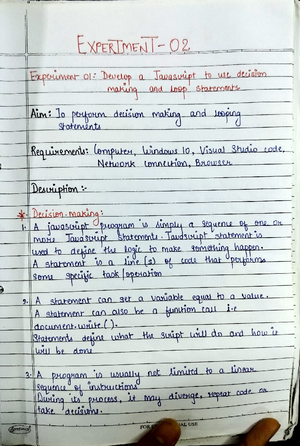 EXPERTMENT-02
Experiment 01: Develop a Javascript to use decision
making and loop statements
Aim: To perform decision making and looping
statements
Requirements: Computer, Windows 10, Visual Studio code,
Network connection, Browser
Description :-
* Decision making:
1. A javascript program is simply a sequence of one or
more JavaScript statements. JavaScript statement is
used to define the logic to make something happen.
A statement is a line(s) of code that performs
some specific task/operation
2. A statement can set a variable equal to a value.
A statement can also be a function call i.e
document.write().
Statements define what the script will do and how it
will be done
3. A program is usually not limited to a linear
sequence of instructions
During its process, it may diverge, repeat code or
take decisions.
FOR USE